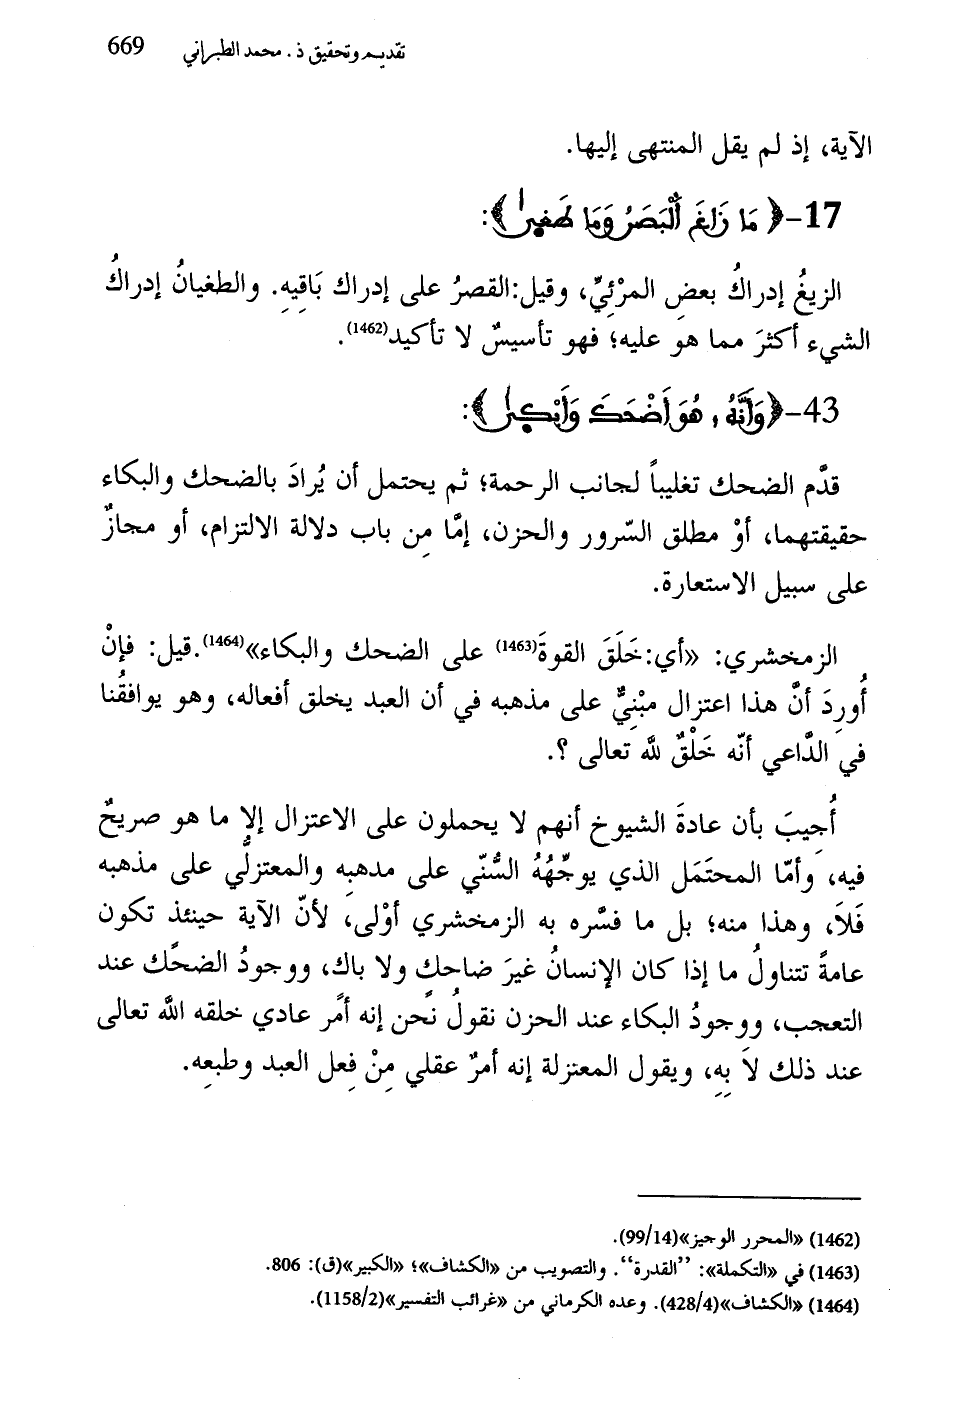 تقديم وتحقيق ذ. محمد الطبراني 669
الآية، إذ لم يقل المنتهى إليها.
17-﴿مَا زَاغَ اَلْبَصَرُ وَمَا طَغِىٰ﴾:
الزيغُ إدراكُ بعضِ المرْئِيِّ، وقيل:القصرُ على إدراك بَاقِيهِ. والطغيانُ إدراكُ
الشيء أكثرَ مما هو عليه؛ فهو تأسيسٌ لا تأكيد(1462).
43-﴿وَأَنَّهُۥ هُوَ أَضْحَكَ وَأَبْكِىٰ﴾:
قدَّم الضحك تغليباً لجانب الرحمة؛ ثم يحتمل أن يُرادَ بالضحك والبكاء
حقيقتهما، أوْ مطلق السّرور والحزن، إمَّا مِن باب دلالة الالتزام، أو مجازٌ
على سبيل الاستعارة.
الزمخشري: «أي:خَلَقَ القوةَ(1463) على الضحك والبكاء»(1464).قيل: فإنْ
أُورِدَ أنَّ هذا اعتزال مبْنِيٌّ على مذهبه في أن العبد يخلق أفعاله، وهو يوافقُنا
في الدَّاعي أنّه خَلْقٌ لله تعالى ؟.
أُجيبَ بأن عادةَ الشيوخ أنهم لا يحملون على الاعتزال إلا ما هو صريحٌ
فيه، وأمّا المحتَمَل الذي يوجِّهُهُ السُّنّي على مذهبِه والمعتزلُّي على مذهبه
فَلاَ، وهذا منه؛ بل ما فسَّره به الزمخشري أوْلى، لأنّ الآية حينئذ تكون
عامةً تتناولُ ما إذا كان الإنسانُ غيرَ ضاحكٍ ولا باك، ووجودُ الضحَّك عند
التعجب، ووجودُ البكاء عند الحزن نقولُ نحن إنه أمر عادي خلقه الله تعالى
عند ذلك لاَ بِهِ، ويقول المعتزلة إنه أمرٌ عقلي مِنْ فِعل العبد وطبعِه.
(1462) «المحرر الوجيز»(99/14).
(1463) في «التكملة»: ’’القدرة‘‘. والتصويب من «الكشاف»؛ «الكبير»(ق): 806.
(1464) «الكشاف»(428/4). وعده الكرماني من «غرائب التفسير»(1158/2).